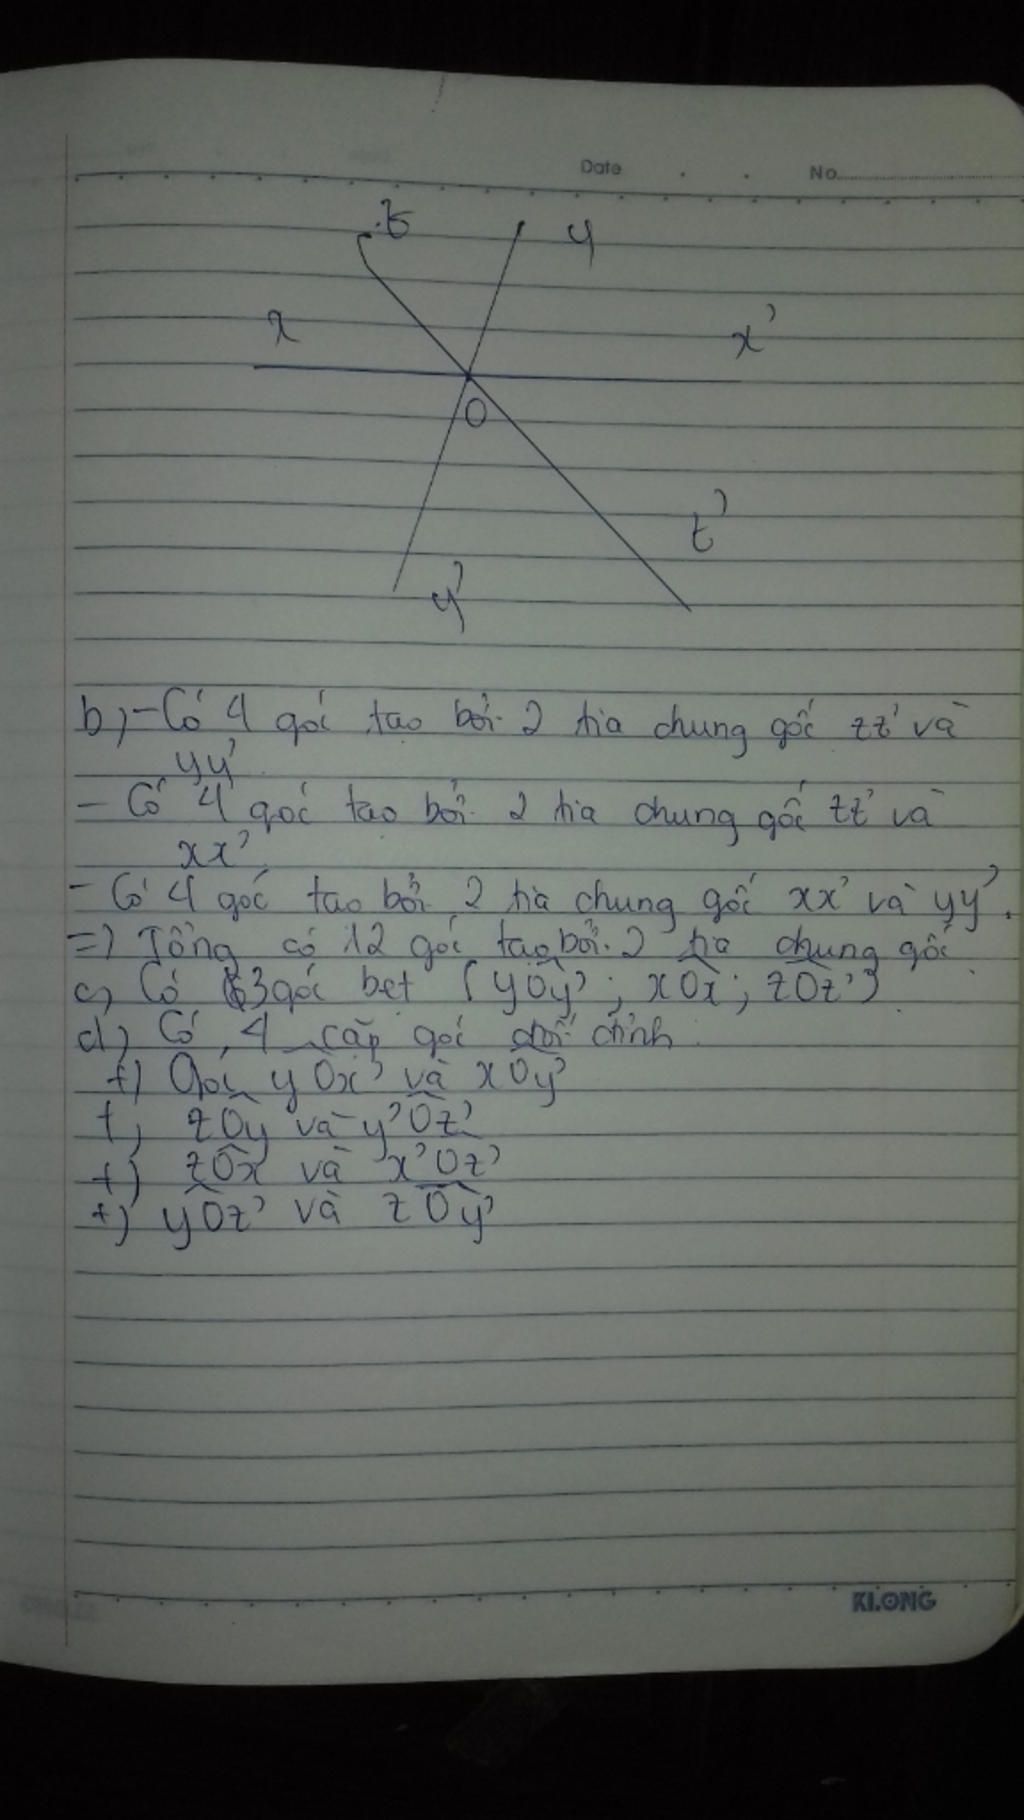 Date No
z y
x x'
O
z'
y'
b, - Có 4 góc tạo bởi 2 tia chung gốc zz' và
yy'
- Có 4 góc tạo bởi 2 tia chung gốc zz' và
xx'
- Có 4 góc tạo bởi 2 tia chung gốc xx' và yy'.
=) Tổng có 12 góc tạo bởi 2 tia chung gốc
c, Có 3 góc bẹt (yÔy'; xÔx'; zÔz')
d, Có 4 cặp góc đối đỉnh.
+) Góc yÔx' và xÔy'
+) zÔy và y'Ôz'
+) zÔx và x'Ôz'
+) yÔz' và zÔy'
KLONG